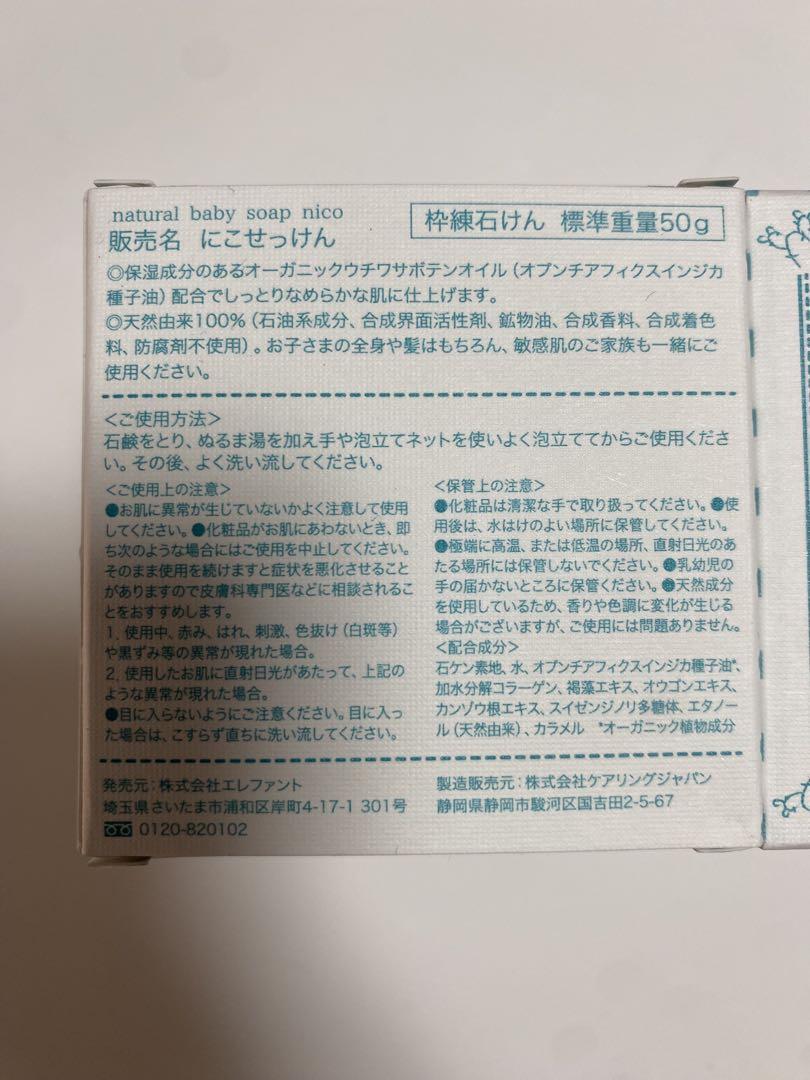 natural baby soap nico
販売名 にこせっけん
枠練石けん 標準重量50g
◎保湿成分のあるオーガニックウチワサボテンオイル（オプンチアフィクスインジカ
種子油）配合でしっとりなめらかな肌に仕上げます。
◎天然由来100%（石油系成分、合成界面活性剤、鉱物油、合成香料、合成着色
料、防腐剤不使用）。お子さまの全身や髪はもちろん、敏感肌のご家族も一緒にご
使用ください。
＜ご使用方法＞
石鹸をとり、ぬるま湯を加え手や泡立てネットを使いよく泡立ててからご使用くださ
い。その後、よく洗い流してください。
＜ご使用上の注意＞
●お肌に異常が生じていないかよく注意して使用
してください。●化粧品がお肌にあわないとき、即
ち次のような場合にはご使用を中止してください。
そのまま使用を続けますと症状を悪化させること
がありますので皮膚科専門医などに相談されるこ
とをおすすめします。
1. 使用中、赤み、はれ、刺激、色抜け（白斑等）
や黒ずみ等の異常が現れた場合。
2. 使用したお肌に直射日光があたって、上記の
ような異常が現れた場合。
●目に入らないようにご注意ください。目に入っ
た場合は、こすらず直ちに洗い流してください。
＜保管上の注意＞
●化粧品は清潔な手で取り扱ってください。●使
用後は、水はけのよい場所に保管してください。
●極端に高温、または低温の場所、直射日光のあ
たる場所には保管しないでください。●乳幼児の
手の届かないところに保管ください。●天然成分
を使用しているため、香りや色調に変化が生じる
場合がございますが、ご使用には問題ありません。
＜配合成分＞
石ケン素地、水、オプンチアフィクスインジカ種子油*、
加水分解コラーゲン、褐藻エキス、オウゴンエキス、
カンゾウ根エキス、スイゼンジノリ多糖体、エタノー
ル（天然由来）、カラメル *オーガニック植物成分
発売元：株式会社エレファント
埼玉県さいたま市浦和区岸町4-17-1 301号
0120-820102
製造販売元：株式会社ケアリングジャパン
静岡県静岡市駿河区国吉田2-5-67